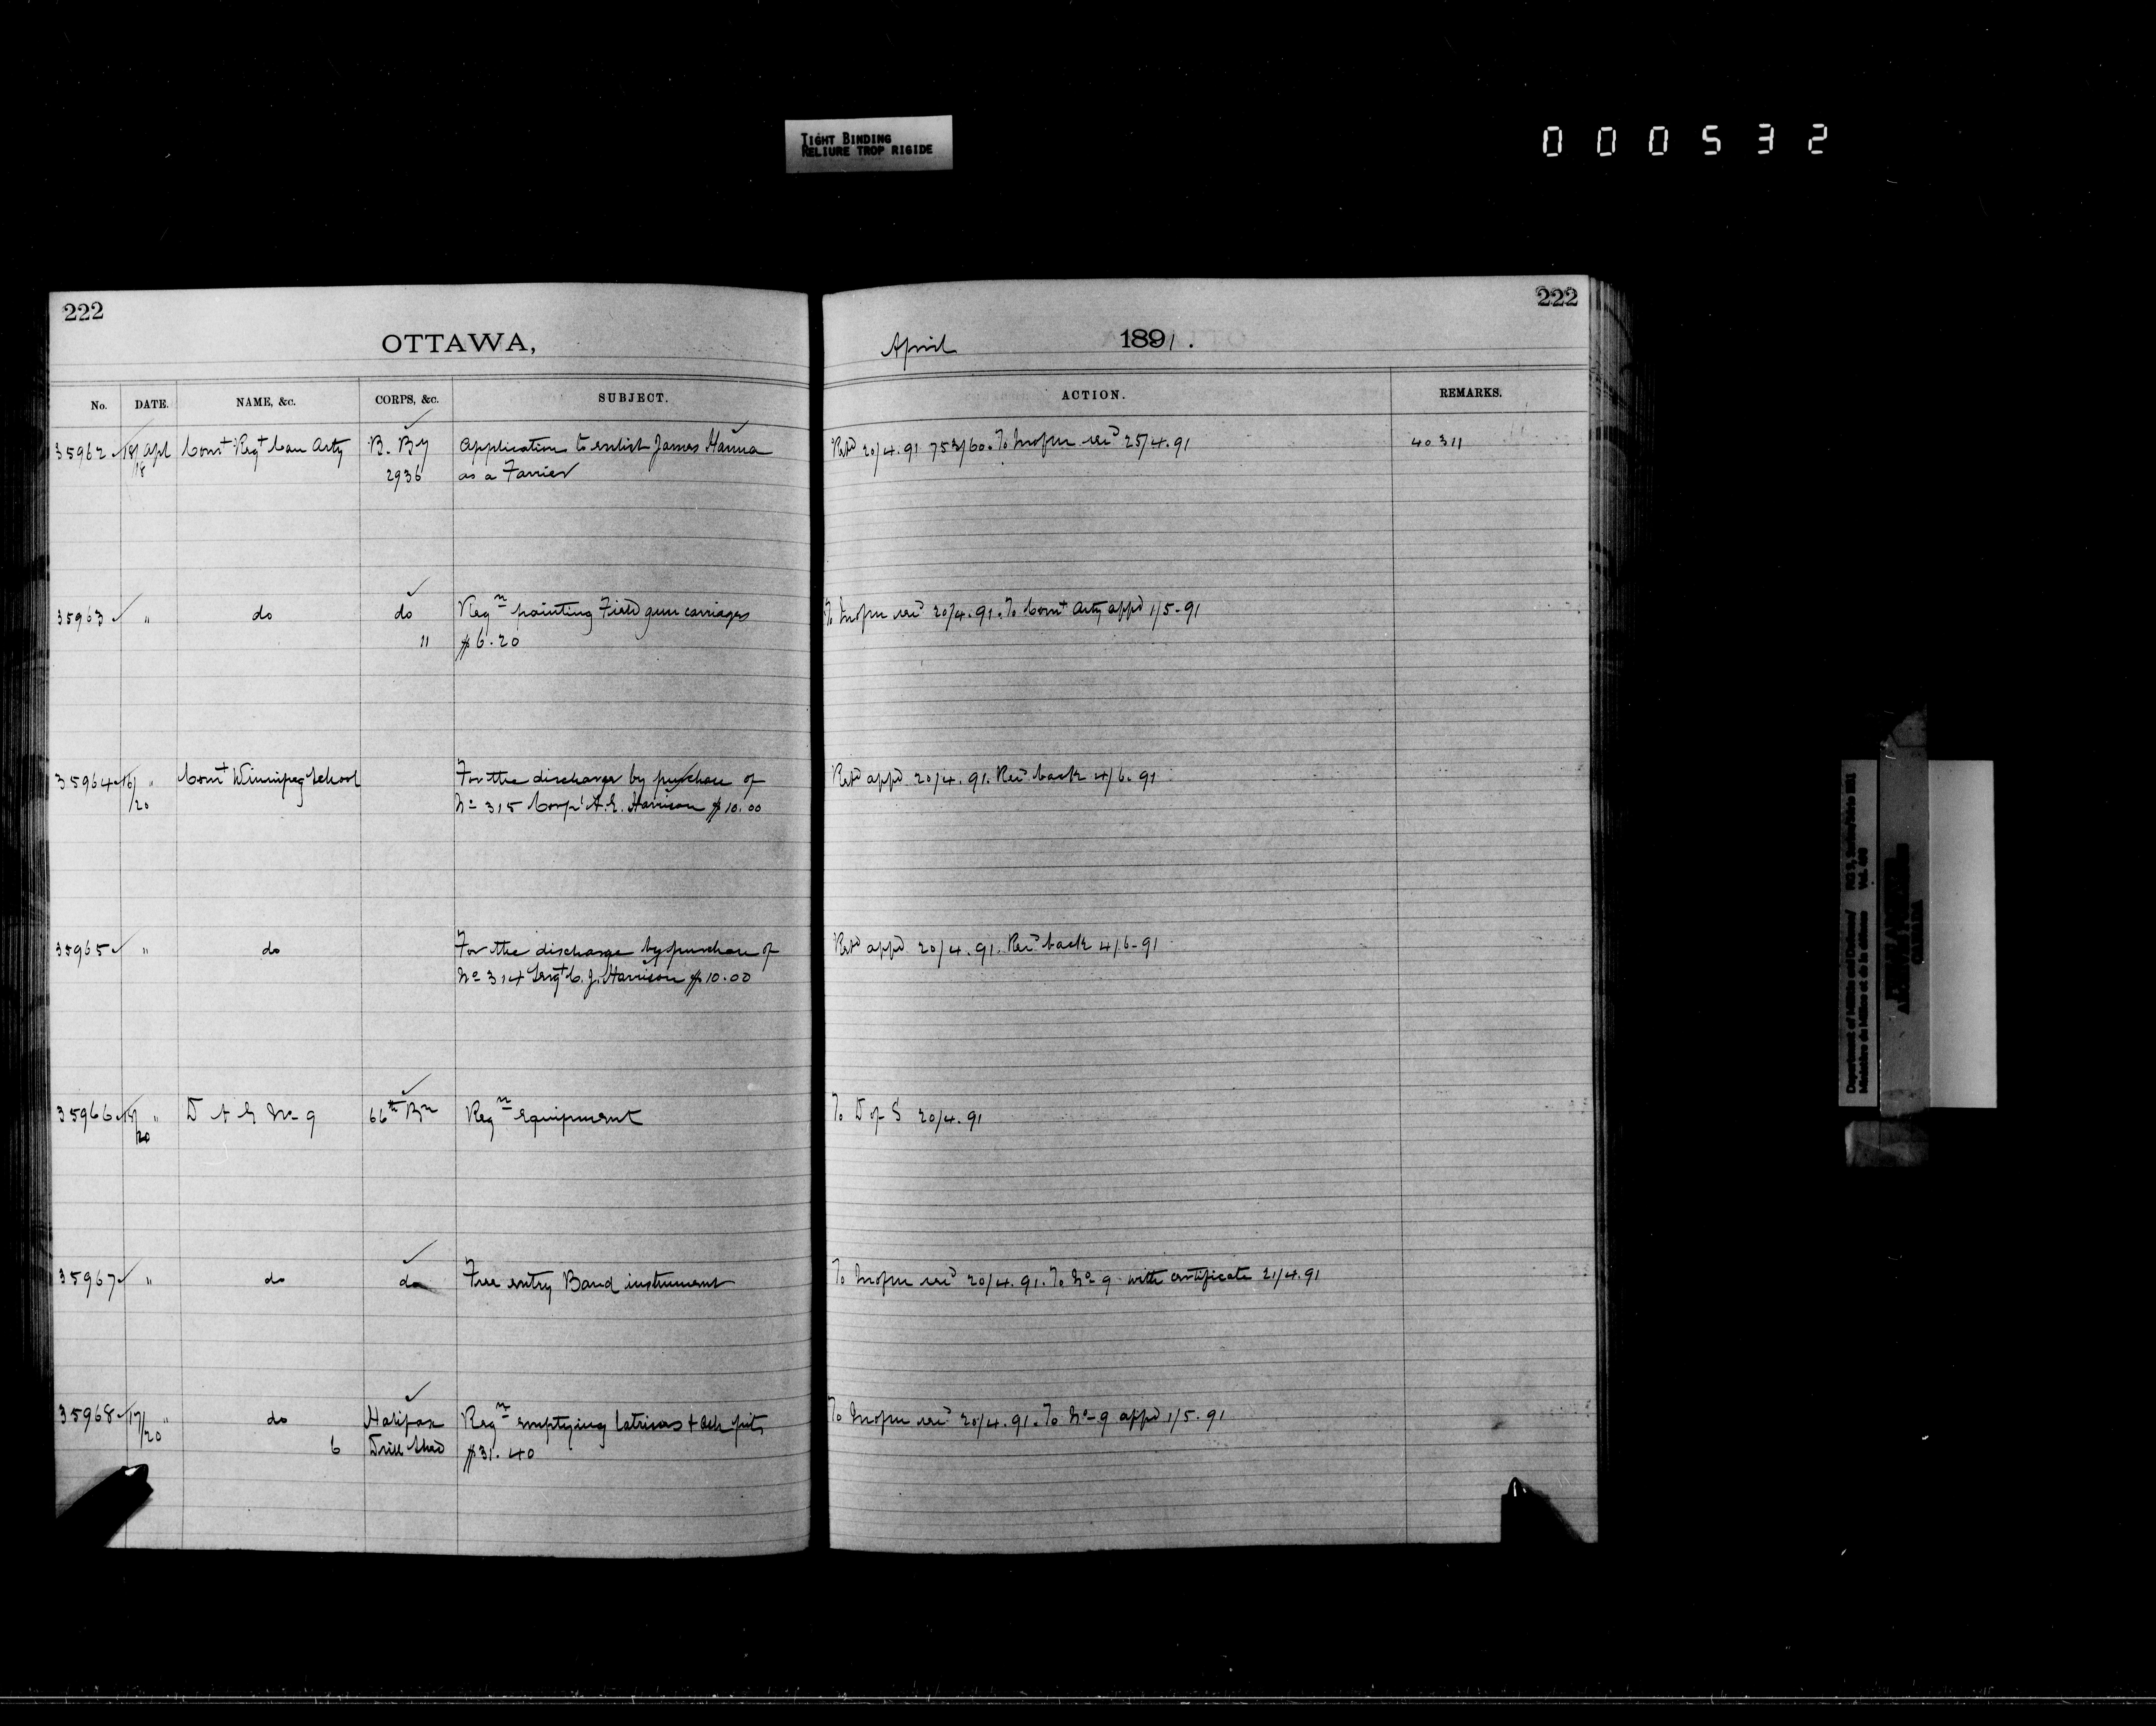 TIGHT BINDING
RELIURE TROP RIGIDE
000532
222
222
OTTAWA,
April 1891.
No. DATE. NAME, &c. CORPS, &c. SUBJECT. ACTION. REMARKS.
35962 18/18 Apl Comt Regt Can Arty B. By Application to enlist James Hanna Retd 20/4.91 753/60. To Insfm 25/4.91 40311
2936 as a Farrier
35963 " do do Reqn painting Field gun carriages To 20/4.91. To Comt Arty appd 1/5-91
" $6.20
35964 16/20 " Comt Winnipeg School For the discharge by purchase of Retd appd 20/4.91. Recd back 4/6.91
No 315 Corpl A. E. Harrison $10.00
35965 " do For the discharge by purchase of Retd appd 20/4.91. Recd back 4/6-91
No 314 Sergt C. J. Harrison $10.00
35966 18/20 " D A G No 9 66th Bn Reqn equipment To D of S 20/4.91
35967 " do do Free entry Band instrument To 20/4.91. To No 9 with certificate 21/4.91
35968 17/20 " do Halifax Reqn emptying latrines + ash pits To 20/4.91. To No 9 appd 1/5.91
6 Drill Shed $31.40
Department of Militia and Defence
Ministère de la Milice et de la défense